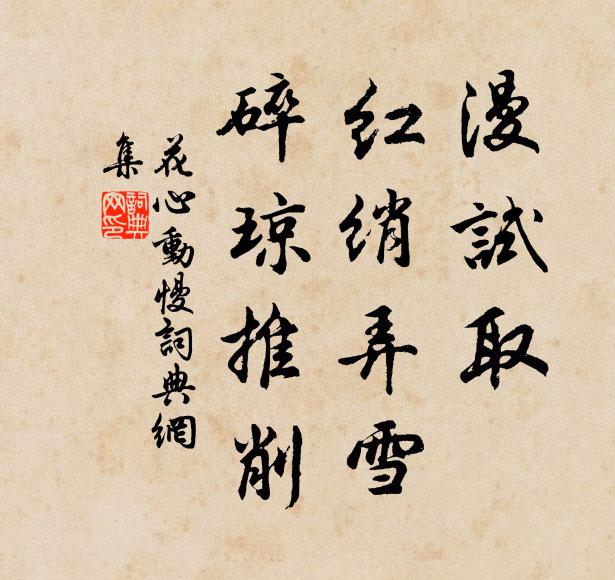 漫試取
紅綃弄雪
碎琼推削
花心動慢詞典網
集
詞典
网印